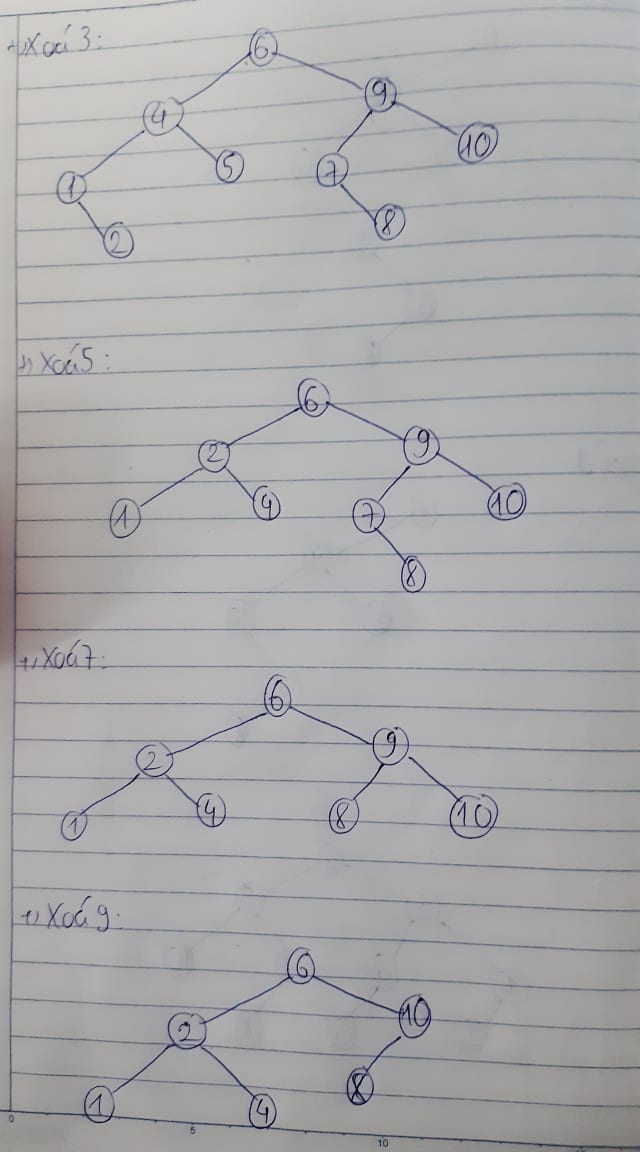 +, Xoá 3:
6
4 9
1 5 7 10
2 8
+, Xoá 5:
6
2 9
1 4 7 10
8
+, Xoá 7:
6
2 9
1 4 8 10
+, Xoá 9:
6
2 10
1 4 8
0 5 10